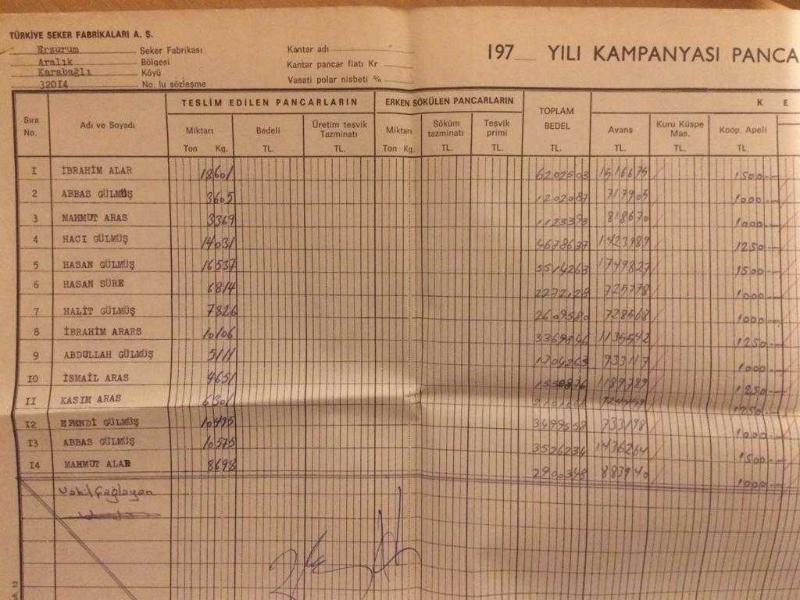 TÜRKİYE ŞEKER FABRİKALARI A. Ş.
Erzurum Şeker Fabrikası
Aralık Bölgesi
Karabağlı Köyü
32014 No. lu sözleşme
Kantar adı
Kantar pancar fiatı Kr
Vasati polar nisbeti %
197 YILI KAMPANYASI PANCA
Sıra No. Adı ve Soyadı TESLİM EDİLEN PANCARLARIN ERKEN SÖKÜLEN PANCARLARIN TOPLAM BEDEL K E
Miktarı Bedeli Üretim teşvik Tazminatı Miktarı Söküm tazminatı Teşvik primi Avans Kuru Küspe Mas. Koop. Apeli
Ton Kg. TL. TL. Ton Kg. TL. TL. TL. TL. TL. TL.
I İBRAHİM ALAR 18601 6202503 1516675 1500
2 ABBAS GÜLMÜŞ 3605 1202087 717905 1000
3 MAHMUT ARAS 3369 1123393 818670 1000
4 HACI GÜLMÜŞ 14031 4678637 1423989 1250
5 HASAN GÜLMÜŞ 16537 5514263 1749827 1500
6 HASAN SÜRE 6814 2272128 725778 1000
7 HALİT GÜLMÜŞ 7826 2609580 728568 1000
8 İBRAHİM ARARS 10106 1135542 1250
9 ABDULLAH GÜLMÜŞ 5111 1704263 933117 1000
10 İSMAİL ARAS 4651 1189789 1250
11 KASIM ARAS 6301 1250
I2 EFENDİ GÜLMÜŞ 10495 3499558 733198 1000
I3 ABBAS GÜLMÜŞ 10575 3526234 1436264 1500
I4 MAHMUT ALAR 8698 2900348 883940 1000
Vekil Çağlayan